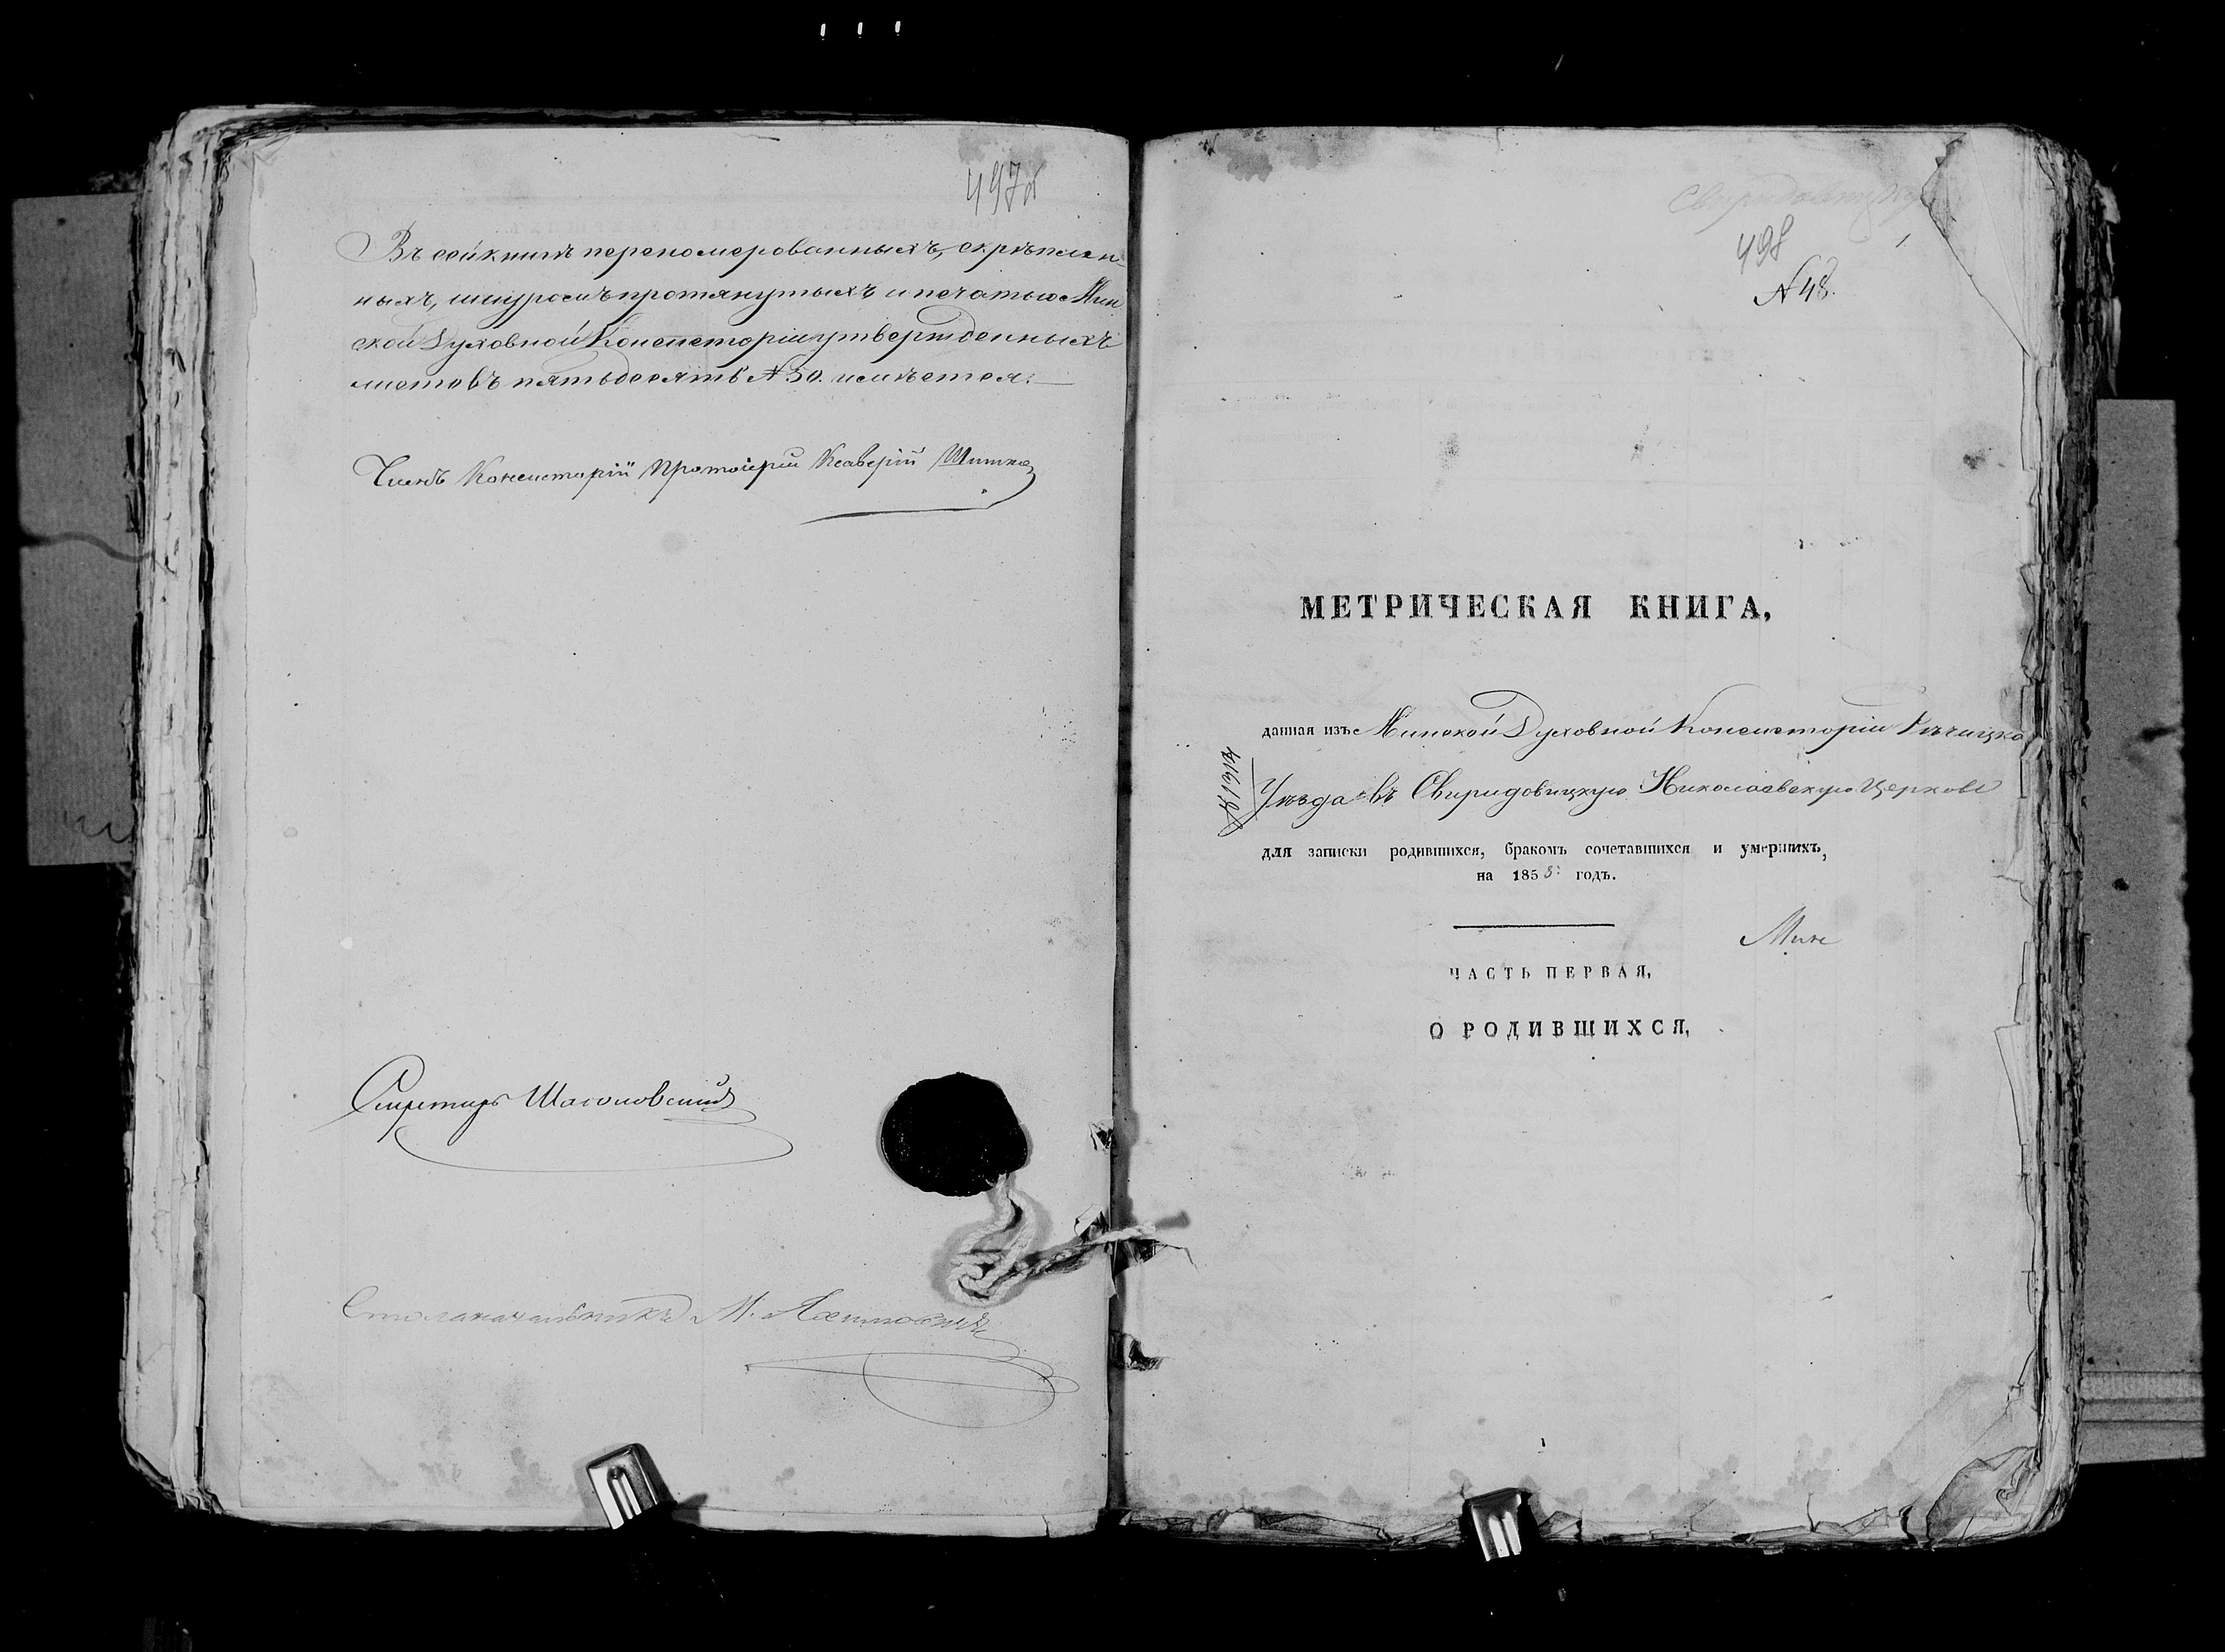 497об
Въ сей книгѣ перепомерованныхъ, скрѣплен-
ныхъ, шнуромъ протянутыхъ и печатью Мин
ской Духовной Консисторіи утвержденныхъ
листовъ пятьдесятъ № 50. имѣется.
Членъ Консисторіи Протоіерей Ксаверій
Секретарь
Столоначальникъ М.
498
1
№ 48.
МЕТРИЧЕСКАЯ КНИГА,
данная изъ Минской Духовной Консисторіи Рѣчицка
Уѣзда въ Свиридовицкую Николаевскую Церковь
для записки родившихся, бракомъ сочетавшихся и умершихъ,
на 185 годъ.
Мин
ЧАСТЬ ПЕРВАЯ,
О РОДИВШИХСЯ,